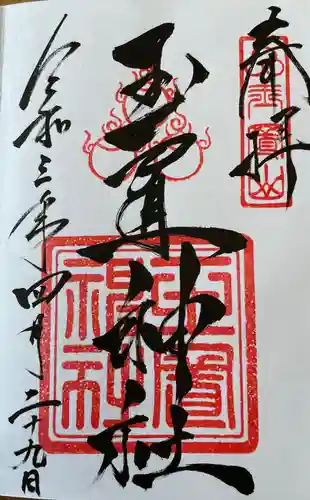 奉拝
玉置神社
令和三年四月二十九日
玉置神社